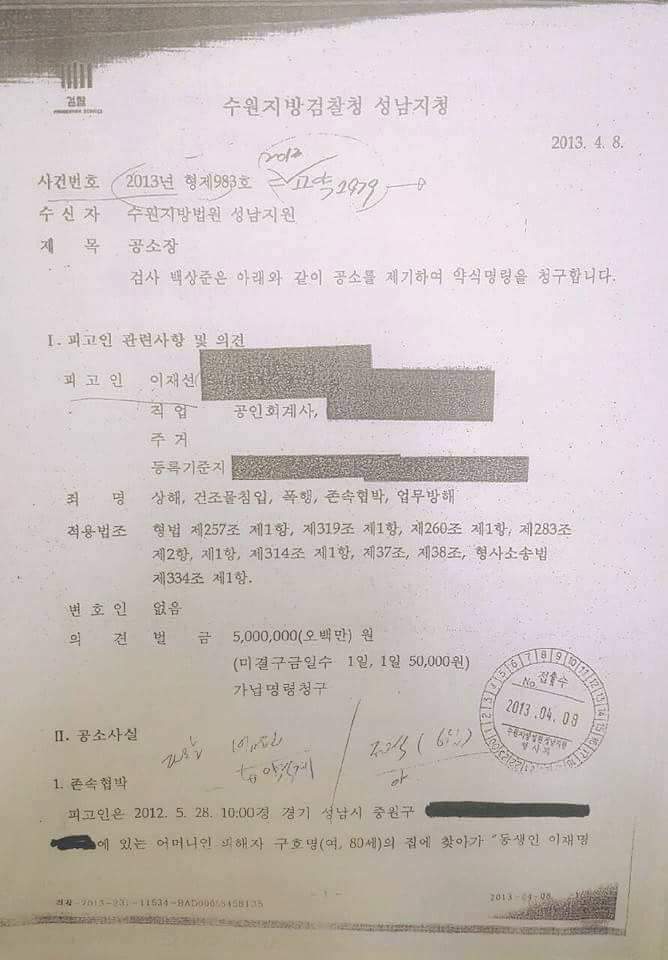 검찰
PROSECUTION SERVICE
수원지방검찰청 성남지청
2013. 4. 8.
사건번호 2013년 형제983호 2013 고약 2979
수 신 자 수원지방법원 성남지원
제 목 공소장
검사 백상준은 아래와 같이 공소를 제기하여 약식명령을 청구합니다.
I. 피고인 관련사항 및 의견
피 고 인 이재선(
직 업 공인회계사,
주 거
등록기준지
죄 명 상해, 건조물침입, 폭행, 존속협박, 업무방해
적용법조 형법 제257조 제1항, 제319조 제1항, 제260조 제1항, 제283조
제2항, 제1항, 제314조 제1항, 제37조, 제38조, 형사소송법
제334조 제1항.
변 호 인 없음
의 견 벌 금 5,000,000(오백만) 원
(미결구금일수 1일, 1일 50,000원)
가납명령청구
No 접수
2013. 04. 08
수원지방법원성남지원
형사과
II. 공소사실
1. 존속협박
피고인은 2012. 5. 28. 10:00경 경기 성남시 중원구
에 있는 어머니인 피해자 구호명(여, 80세)의 집에 찾아가 "동생인 이재명
- 1 -
2013-04-08